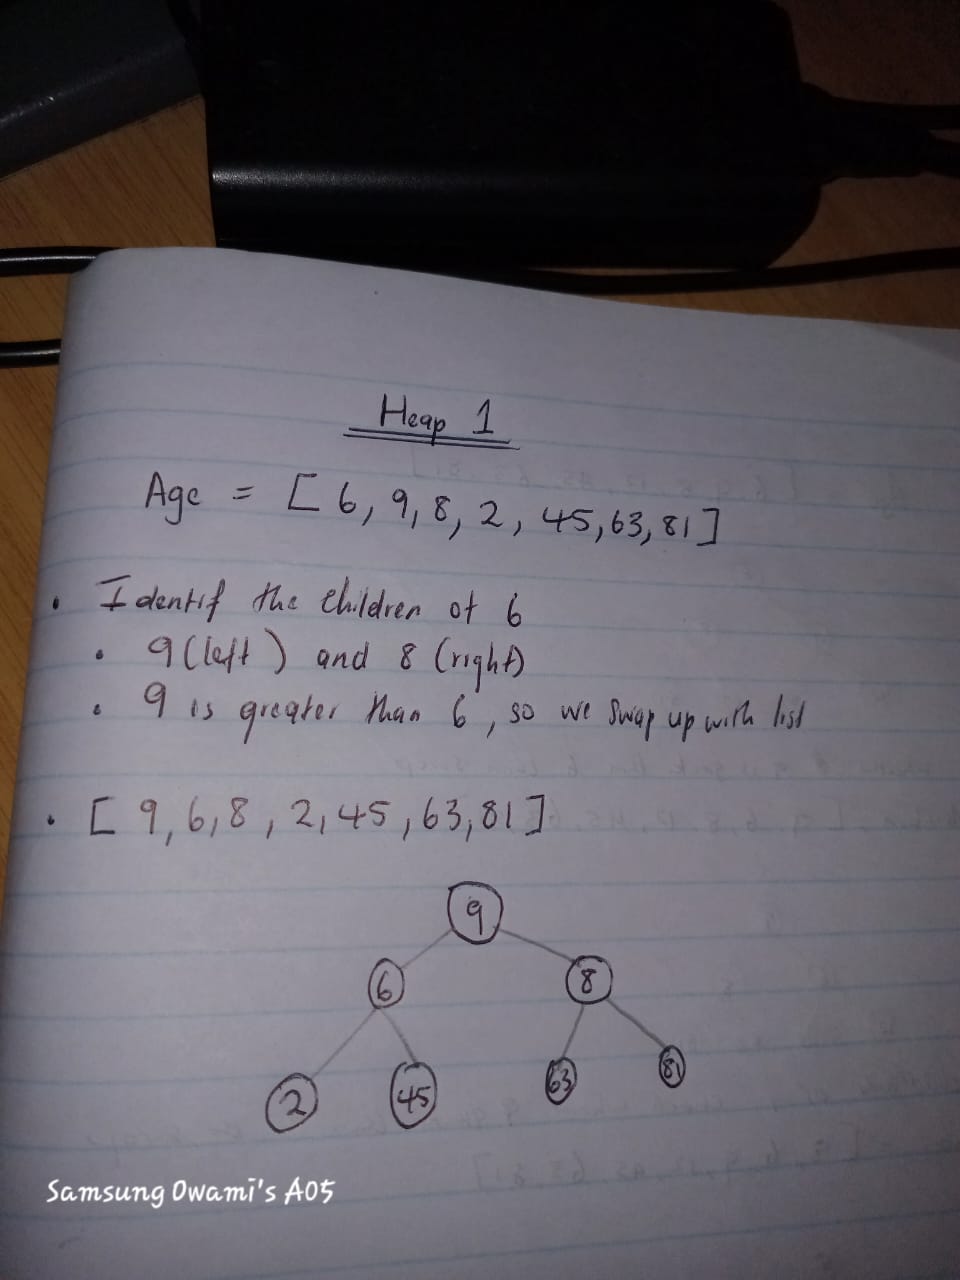 Heap 1
Age = [ 6, 9, 8, 2, 45, 63, 81 ]
• Identif the children of 6
• 9 (left) and 8 (right)
• 9 is greater than 6, so we swap up with list
• [ 9, 6, 8, 2, 45, 63, 81 ]
9
6 8
2 45 63 81
Samsung Owami's A05